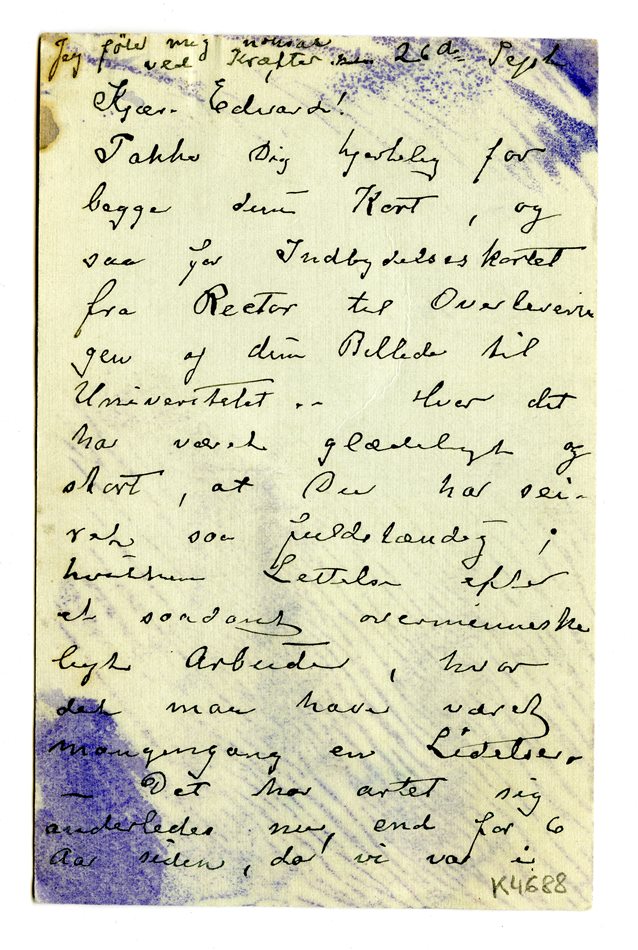 Jeg føler mig noksaa
ved Kræfter. 26de Sept
Kjære Edvard!
Takke Dig hjertelig for
begge dine Kort, og
saa for Indbydelseskortet
fra Rector til Overleverin
gen af dine Billede til
Universitetet. -- Hvor det
har været glædeligt og
stort, at Du har sei-
ret saa fuldstændig;
hvilken Lettelse efter
et saadant overmenneske
ligt Arbeide, hvor
det maa have været
mangengang en Lidelse.
— Det har artet sig
anderledes nu, end for 6
Aar siden, da vi var i
K4688